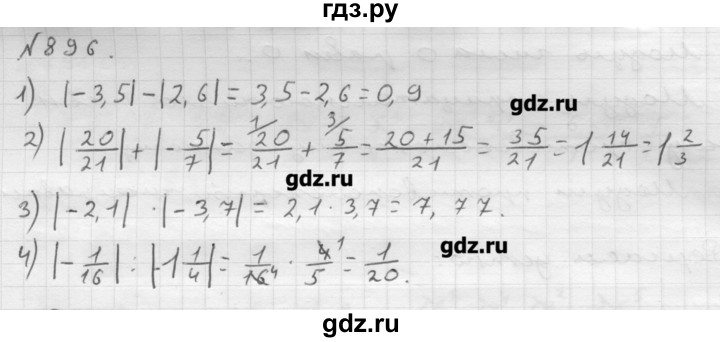 гдз.ру
№896.
1) |-3,5|-|2,6|=3,5-2,6=0,9
gdz.ru
2) |20/21|+|-5/7|=20/21 ¹/+5/7 ³/=(20+15)/21=35/21=1 14/21=1 2/3
gdz.ru
3) |-2,1|·|-3,7|=2,1·3,7=7,77.
4) |-1/16|:|-1 1/4|=1/16 4·4 1/5=1/20.
gdz.ru
gdz.ru